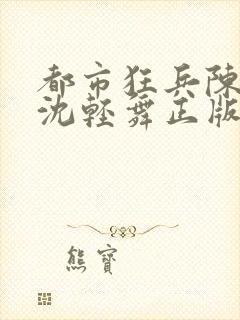 都市狂兵陳
沈輕舞正版
熊寶